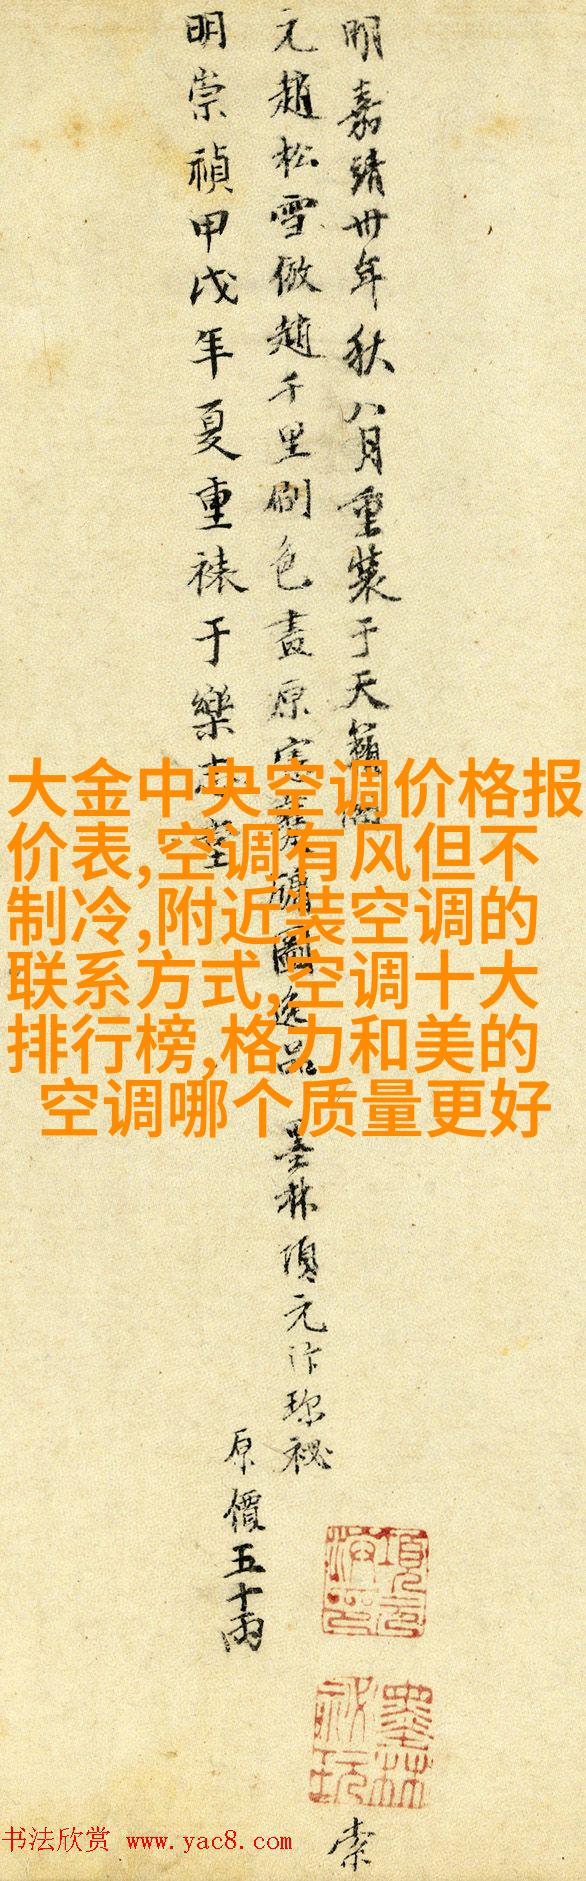 明嘉靖卅年秋八月重裝于天籟閣
元趙松雪倣趙千里刷色畫
墨林項元汴珍祕
原價五十兩
明崇禎甲戌年夏重裱于樂志堂
大金中央空调价格报
价表,空调有风但不
制冷,附近装空调的
联系方式,空调十大
排行榜,格力和美的
空调哪个质量更好
項元汴印
墨林祕玩
书法欣赏 www.yac8.com